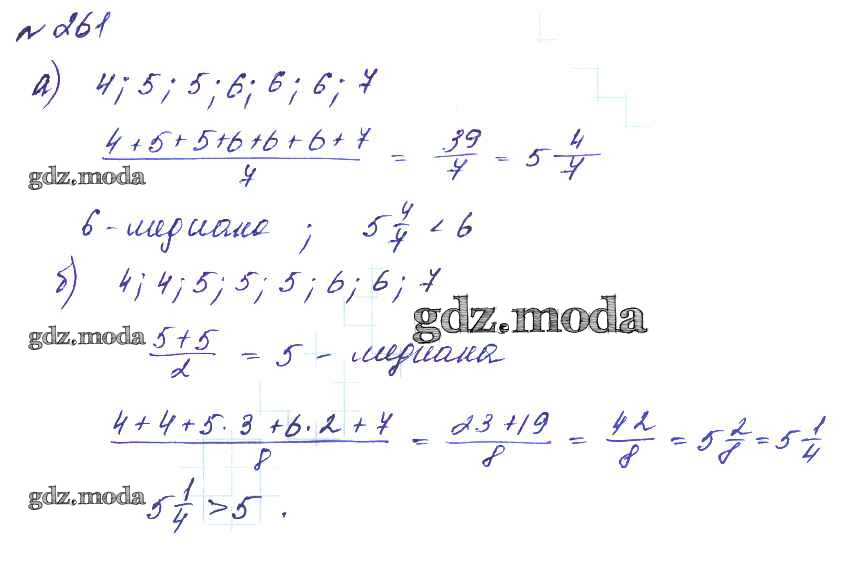 № 261
а) 4; 5; 5; 6; 6; 6; 7
(4+5+5+6+6+6+7)/7 = 39/7 = 5 4/7
gdz.moda
6 - медиана ; 5 4/7 < 6
б) 4; 4; 5; 5; 5; 6; 6; 7
gdz.moda
gdz.moda
(5+5)/2 = 5 - медиана
(4+4+5·3+6·2+7)/8 = (23+19)/8 = 42/8 = 5 2/8 = 5 1/4
gdz.moda
5 1/4 > 5 .